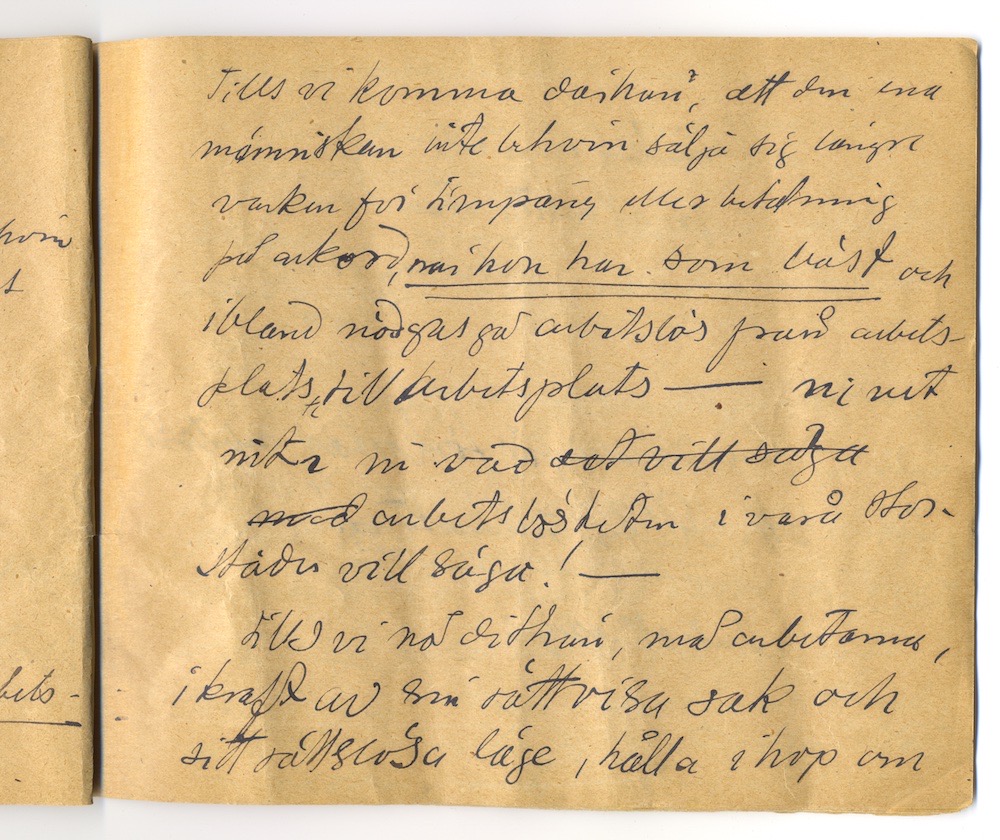 hvin
t
bets-
Tills vi komma därhän, att den ena
människan inte behöver sälja sig längre
varken för timpäng eller betalning
på ackord, när hon har som bäst och
ibland nödgas gå arbetslös från arbets-
plats till arbetsplats — ni vet
inte ni vad det vill säga
med arbetslösheten i våra stor-
städer vill säga! —
Tills vi nå dithän, må arbetarna,
i kraft av sin rättvisa sak och
sitt rättslösa läge, hålla ihop om